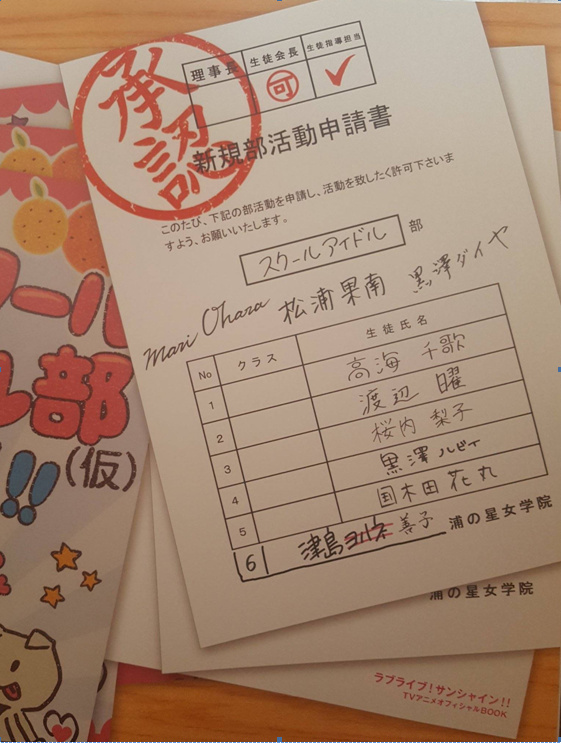 承認
理事長 生徒会長 生徒指導担当
可 ✓
新規部活動申請書
このたび、下記の部活動を申請し、活動を致したく許可下さいま
すよう、お願いいたします。
スクールアイドル 部
Mari Ohara 松浦果南 黒澤ダイヤ
No クラス 生徒氏名
1 高海 千歌
2 渡辺 曜
3 桜内 梨子
4 黒澤 ルビィ
5 国木田 花丸
6 津島ヨハネ 善子
浦の星女学院
浦の星女学院
ラブライブ!サンシャイン!!
TVアニメオフィシャルBOOK
クール
ル部
!!(仮)